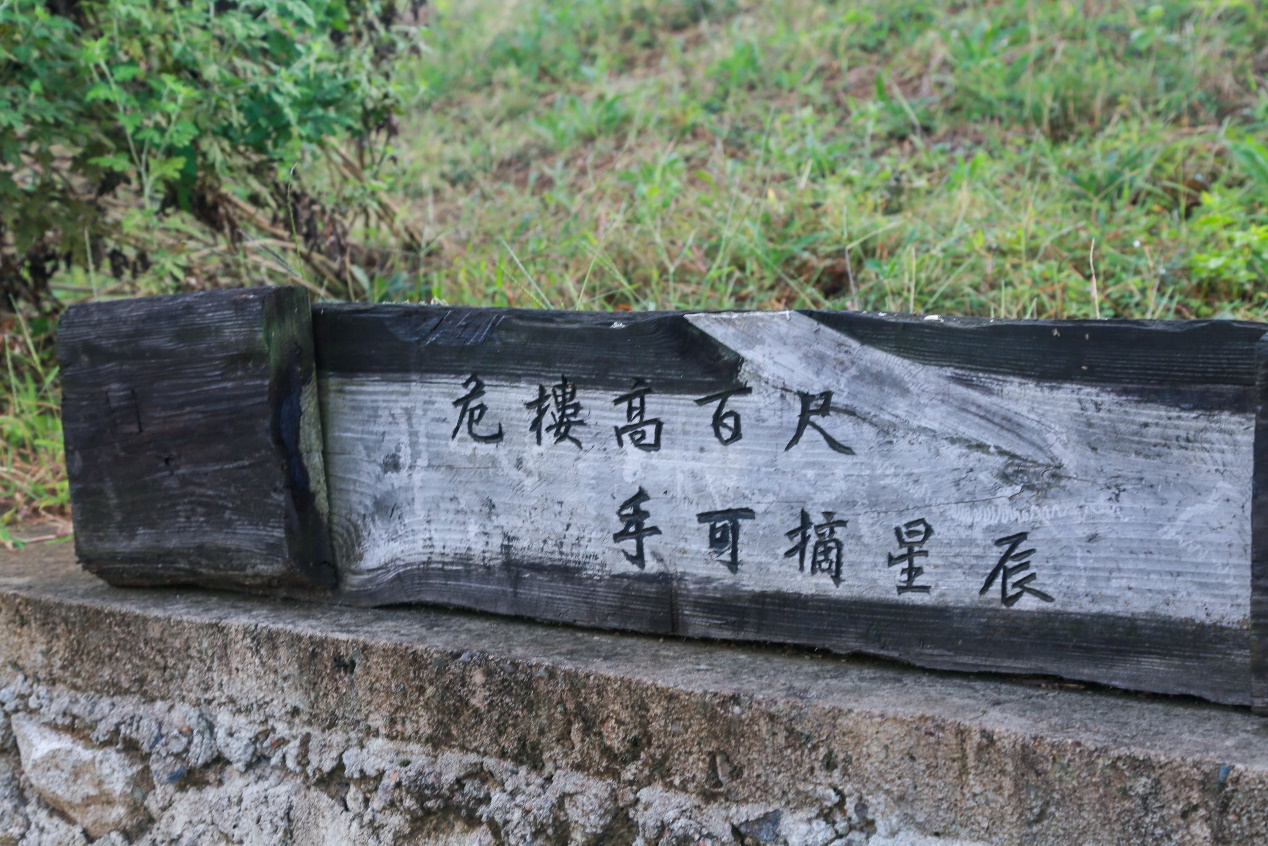 危樓高百尺
手可摘星辰